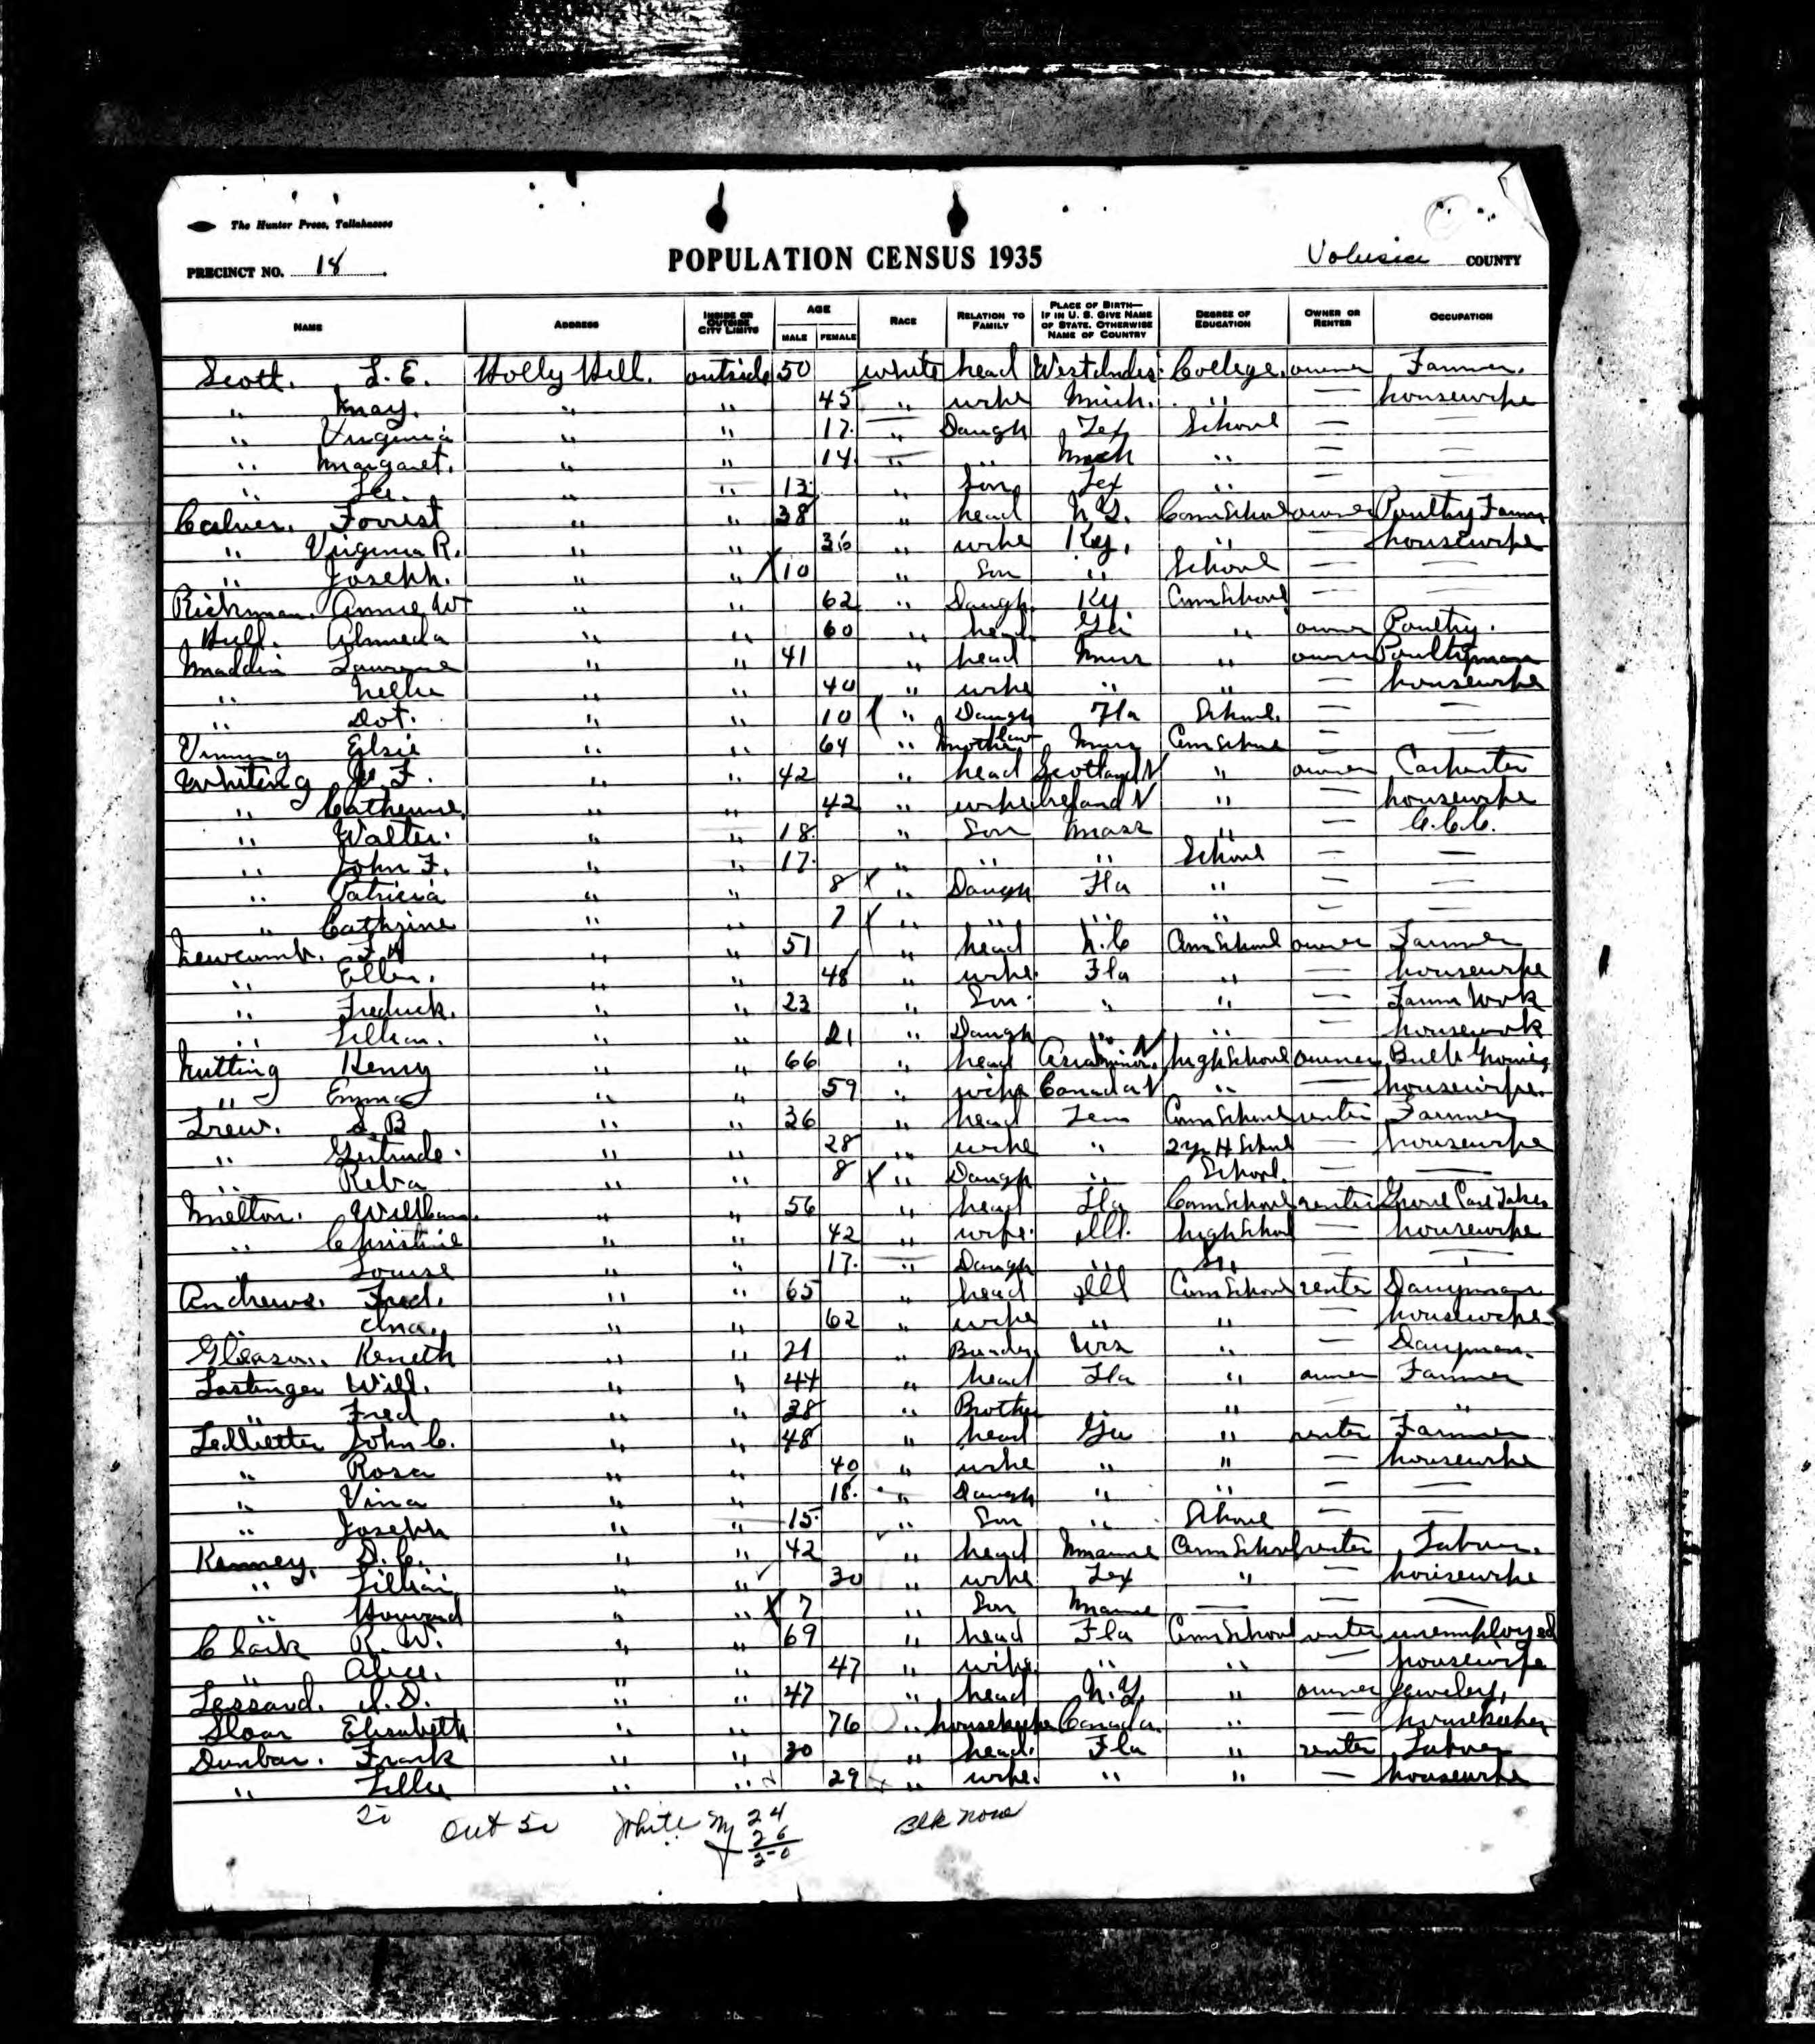 The Hunter Press, Tallahassee
PRECINCT NO. 18 POPULATION CENSUS 1935 Volusia COUNTY
NAME ADDRESS INSIDE OR OUTSIDE CITY LIMITS AGE MALE FEMALE RACE RELATION TO FAMILY PLACE OF BIRTH— IF IN U. S. GIVE NAME OF STATE. OTHERWISE NAME OF COUNTRY DEGREE OF EDUCATION OWNER OR RENTER OCCUPATION
Scott. L. E. Holly Hill. outside 50 white head West Indies College. owner Farmer.
" May. " " 45 " wife Mich. " — housewife
" Virginia " " 17 " Daugh Tex School — —
" Margaret. " " 14 " " Mich " — —
" " " 13 " Son Tex " — —
Forrest " " 38 " head N.Y. Com School owner Poultry Farmer
" Virginia R. " " 36 " wife Ky. " — housewife
" Joseph. " " X 10 " Son " School — —
Richman. Annie W " " 62 " Daugh. Ky Com School — —
Hull. Almeda " " 60 " head Ga " owner Poultry.
Maddin Lawrence " " 41 " head " owner Poultryman
" Nellie " " 40 " wife " " — housewife
" Dot. " " 10 " Daugh Fla School. — —
Vining Elsie " " 64 " Mother law Com School —
Whiting F. " " 42 " head Scotland N " owner Carpenter
" Catherine. " " 42 " wife Ireland N " — housewife
" Walter. " " 18 " Son Mass " — C.C.C.
" John F. " " 17 " " " School — —
" Patricia " " 8 X " Daugh Fla " — —
" Cathrine " " 7 X " " " " — —
Newcomb. F H " " 51 " head N.C Com School owner Farmer
" Ellen. " " 48 " wife Fla " — housewife
" Fredrick. " " 23 " Son " " — Farm Work
" Lillian. " " 21 " Daugh " " — housework
Nutting Henry " " 66 " head Asia minor N high School owner Bulb
" Emma " " 59 " wife Canada N " — housewife.
Trew. S B " " 36 " head Tenn Com School renter Farmer
" Gertrude. " " 28 " wife " 2 yr H School — housewife
" Reba " " 8 X " Daugh " School. — —
Melton. William. " " 56 " head Fla Com School renter Grove Care Taker
" Christine " " 42 " wife. Ill. high School — housewife
" Louise " " 17 " Daugh " " — —
Andrews. Fred. " " 65 " head Ill Com School renter Dairyman
" Ina. " " 62 " wife " " — housewife
Gleason. Keneth " " 21 " Wis " — Dairyman.
Lastinger Will. " " 44 " head Fla " owner Farmer
" Fred " " 38 " Brother " " — "
Ledbetter John C. " " 48 " head Ga " renter Farmer
" Rosa " " 40 " wife " " — housewife
" Vina " " 18 " Daugh " " — —
" Joseph " " 15 " Son " School — —
Kenney. D. C. " " 42 " head Maine Com School renter Labor.
" Lillian " " 30 " wife Tex " — housewife
" Howard " " X 7 " Son Maine — — —
Clark R. W. " " 69 " head Fla Com School renter unemployed
" Alice. " " 47 " wife " " — housewife
Lessard. D. " " 47 " head N.Y. " owner Jewelery.
Sloan Elisabeth " " 76 " housekeeper Canada " — housekeeper
Dunbar. Frank " " 30 " head. Fla " renter Labor
" Lillie " " 29 " wife. " " — housewife
50 Out 50 White M 24 Blk none
F 26
50